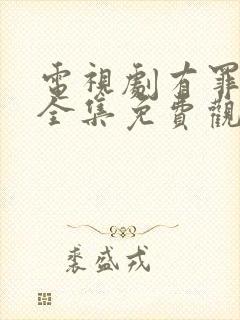 電視劇有罪
全集免費觀
裘盛戎